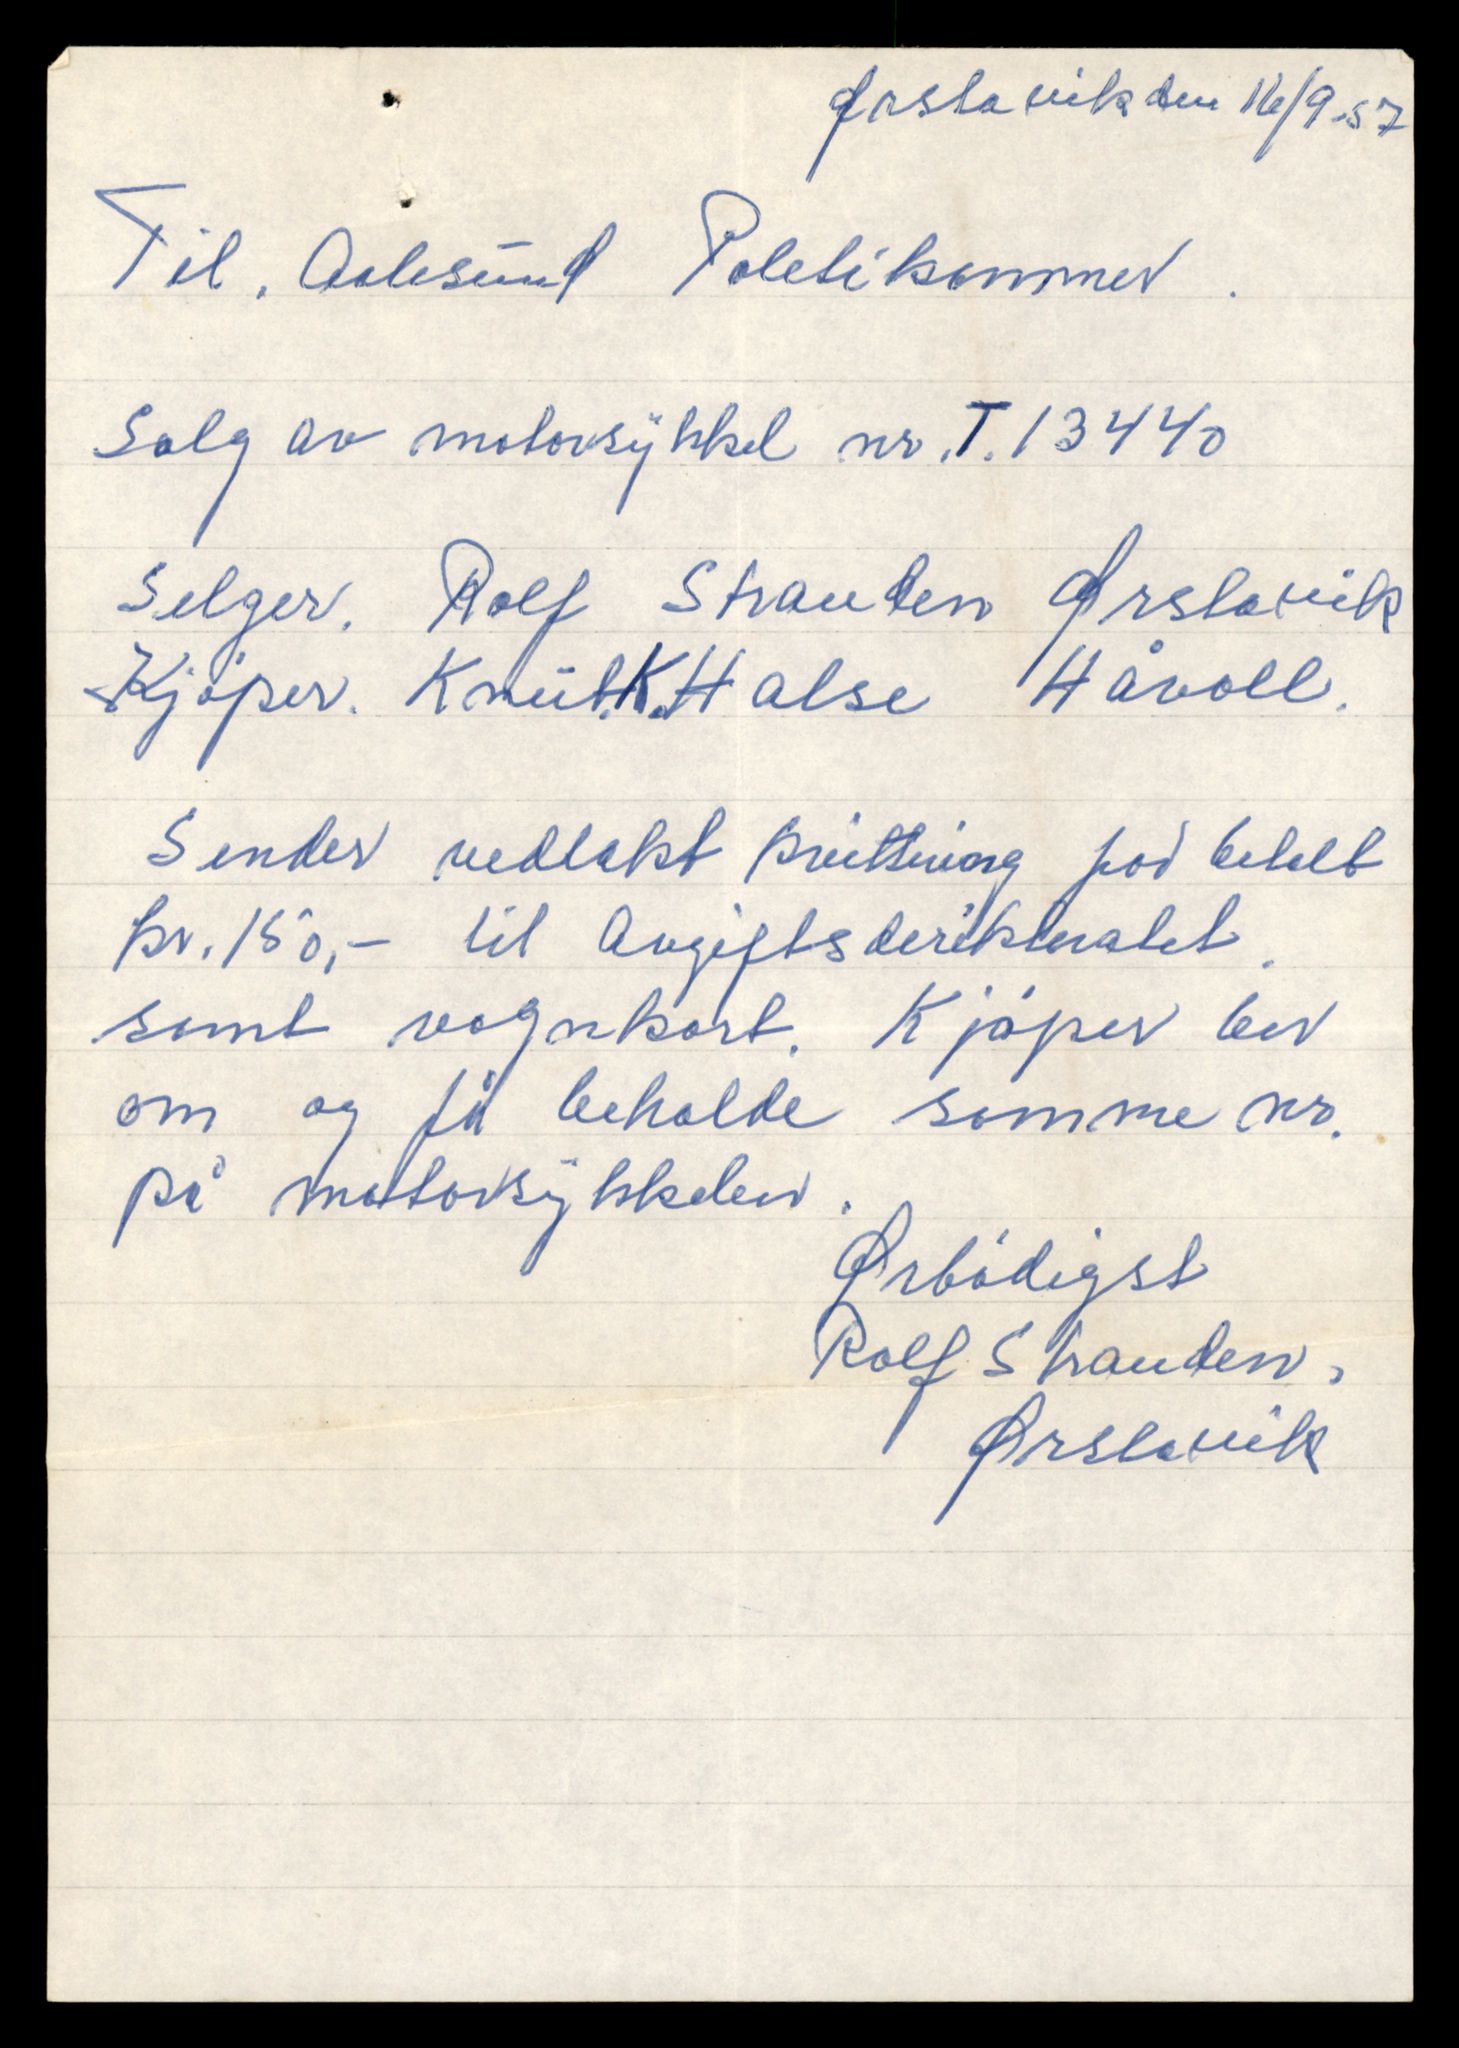 Ørstavik den 16/9.57
Til. Aalesund Poletikammer.
Salg av motorsykkel nr. T. 13440
Selger. Rolf Stranden Ørstavik
Kjøper. Knut. K. Halse Håvoll.
Sender vedlakt kvittering på betalt
kr. 150,- til Avgiftsderiktoratet.
samt vognkort. Kjøper ber
om og få beholde samme nr.
på motorsykkelen.
Ørbødigst
Rolf Stranden,
Ørstavik